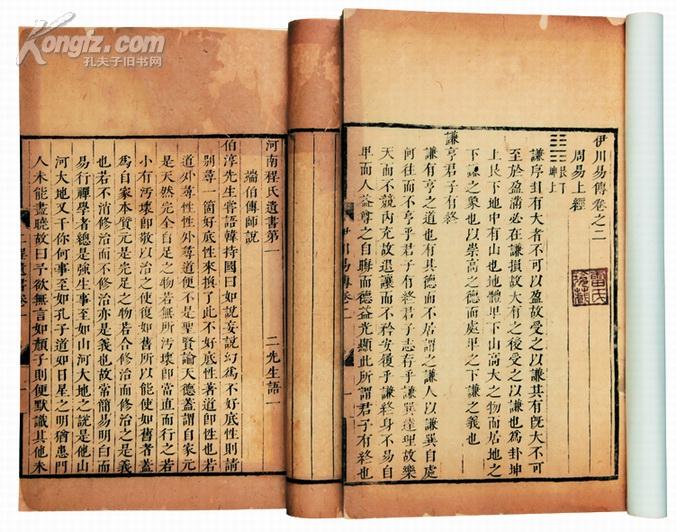 Kongfz.com
孔夫子旧书网
伊川易傳卷之二
周易上經
艮下
坤上
謙序卦有大者不可以盈故受之以謙其有既大不可
至於盈滿必在謙損故大有之後受之以謙也為卦坤
上艮下地中有山也地體卑下山高大之物而居地之
下謙之象也以崇高之德而處卑之下謙之義也
謙亨君子有終
謙有亨之道也有其德而不居謂之謙人以謙巽自處
何往而不亨乎君子有終君子志存乎謙巽達理故樂
天而不競內充故退讓而不矜安履乎謙終身不易自
卑而人益尊之自晦而德益光顯此所謂君子有終也
伊川易傳卷二
一
河南程氏遺書第一
二先生語一
端伯傳師說
伯淳先生嘗語韓持國曰如說妄說幻為不好底性則請
別尋一箇好底性來換了此不好底性著道即性也若
道外尋性性外尋道便不是聖賢論天德蓋謂自家元
是天然完全自足之物若無所污壞即當直而行之若
小有污壞即敬以治之使復如舊所以能使如舊者蓋
為自家本質元是完足之物若合修治而修治之是義
也若不消修治而不修治亦是義也故常簡易明白而
易行禪學者總是強生事至如山河大地之說是他山
河大地又干你何事至如孔子道如日星之明猶患門
人未能盡曉故曰予欲無言如顏子則便默識其他未
二程遺書卷一